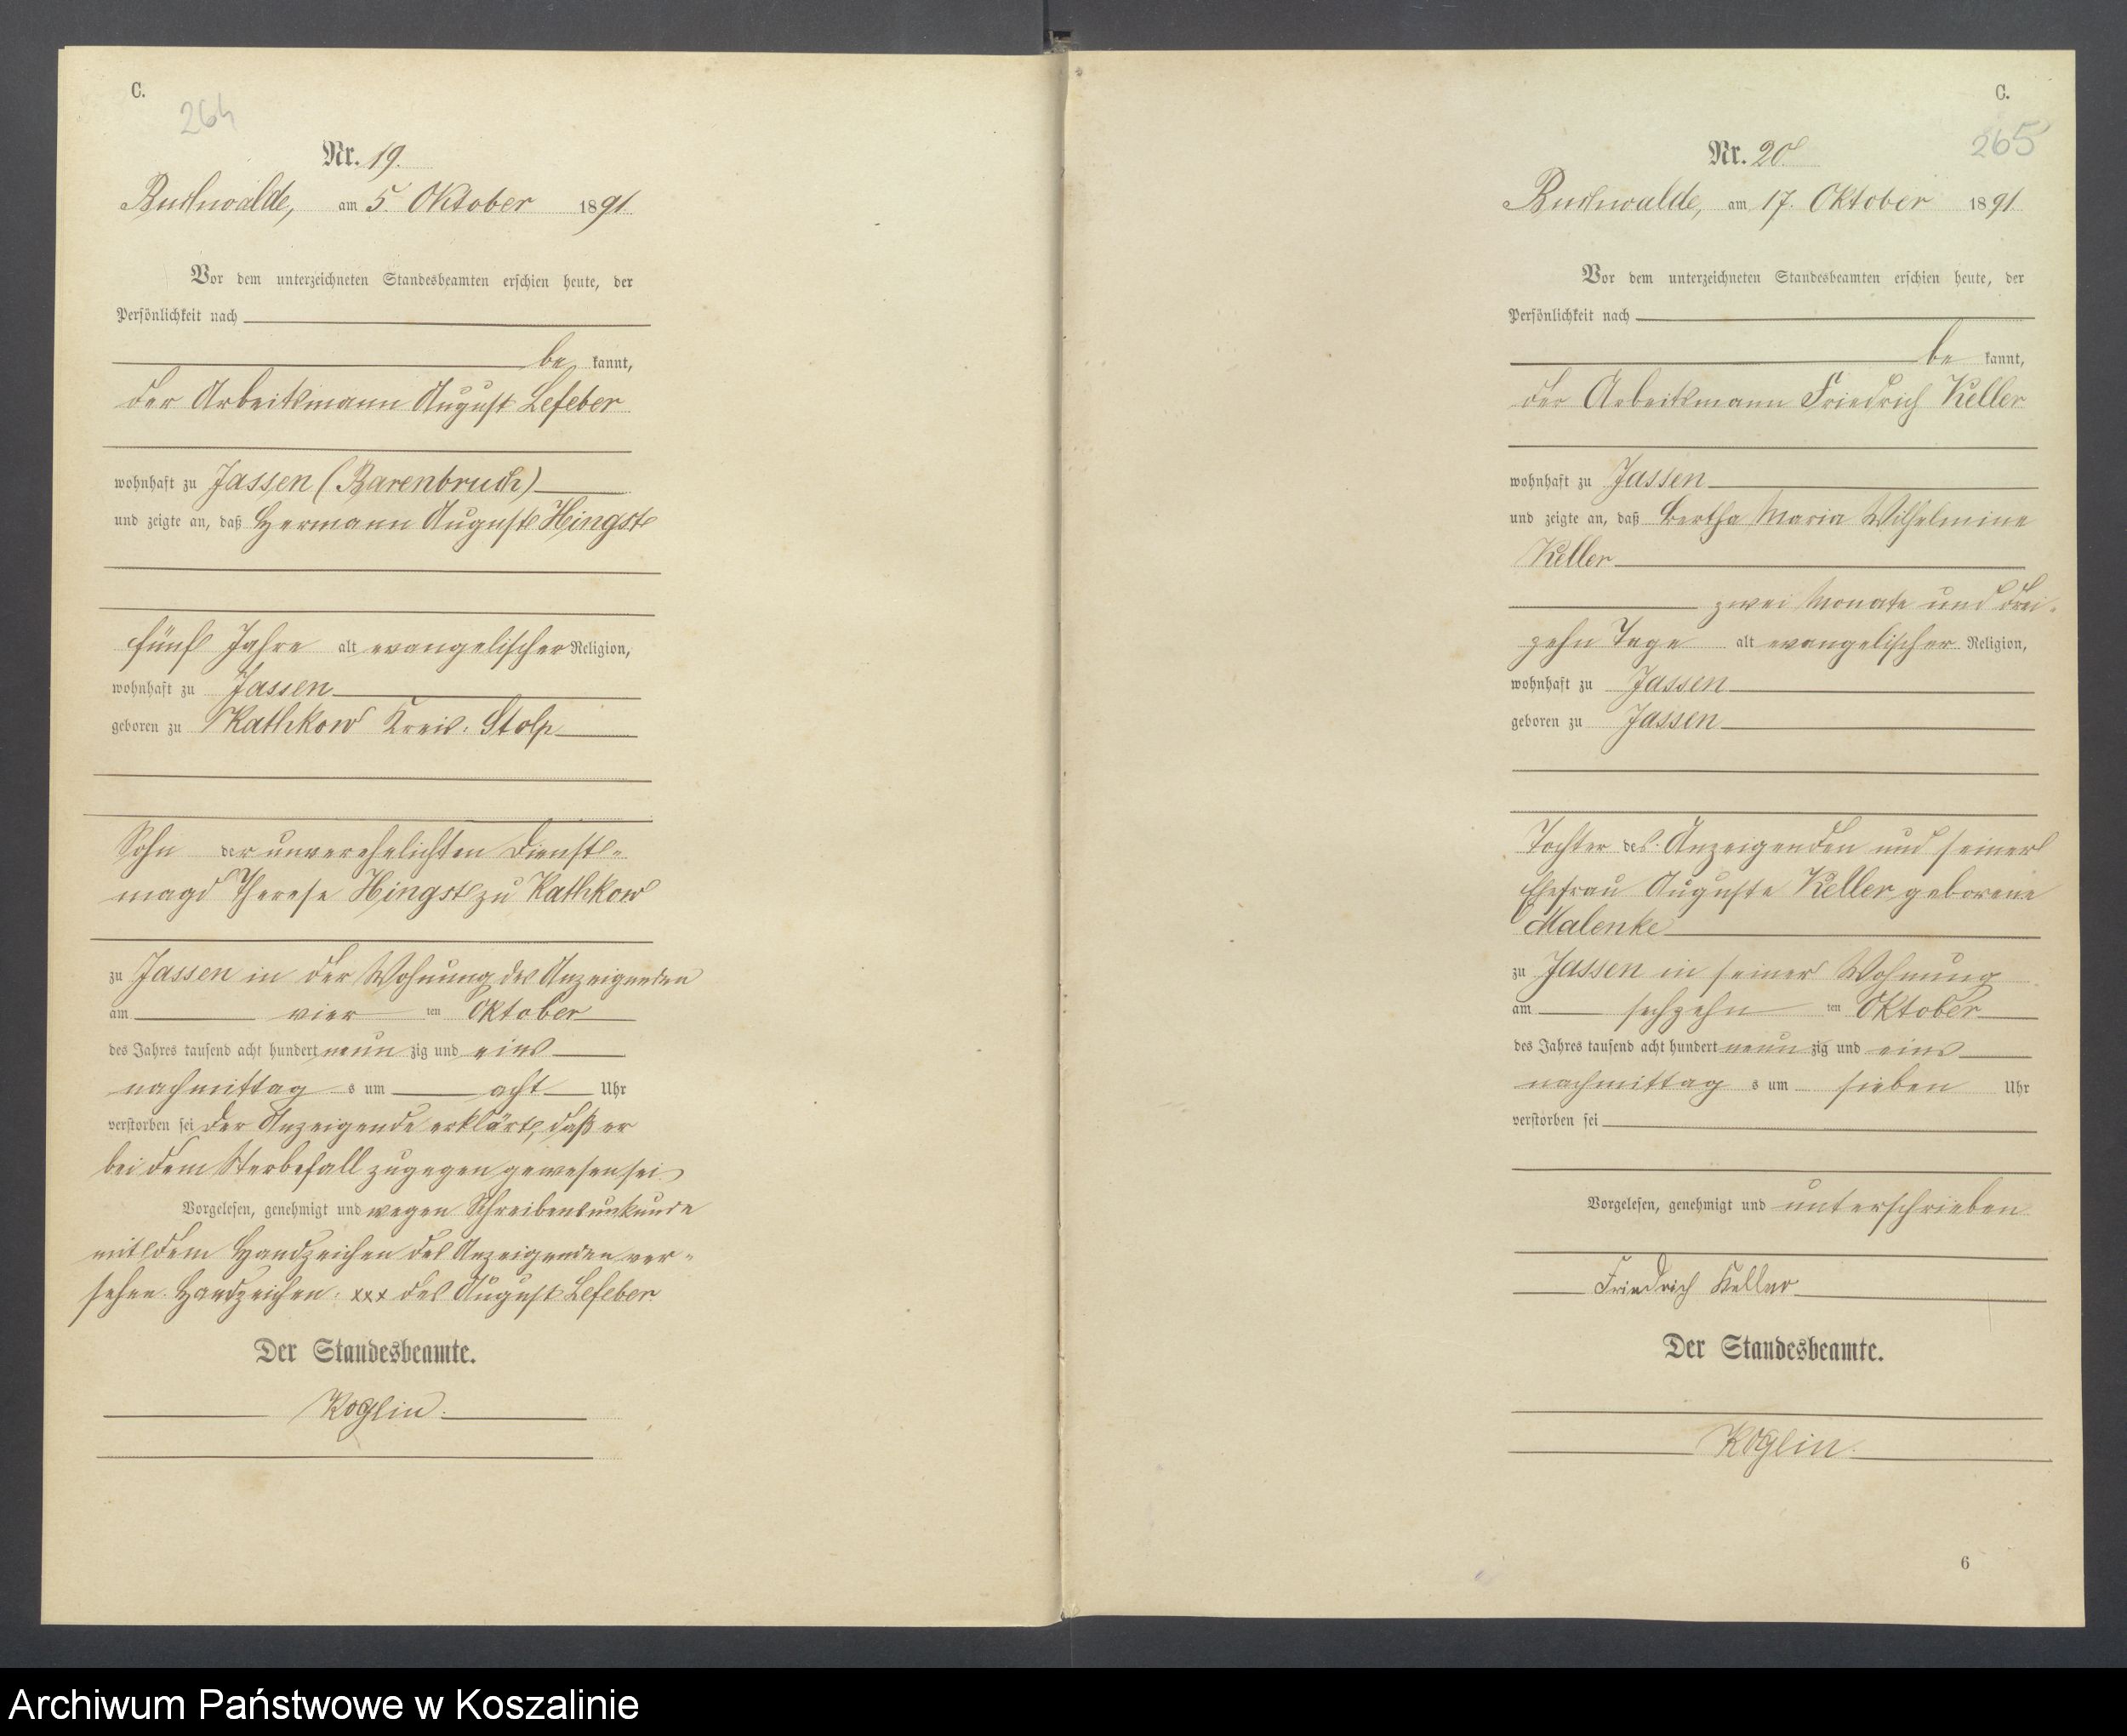 C.
264
Nr. 19.
Buchwalde, am 5. Oktober 1891.
Vor dem unterzeichneten Standesbeamten erschien heute, der
Persönlichkeit nach
be kannt,
der Arbeitsmann August Lefeber
wohnhaft zu Jassen (Barenbruch)
und zeigte an, daß Hermann August Hingst
fünf Jahre alt evangelischer Religion,
wohnhaft zu Jassen
geboren zu Kathkow Kreis: Stolp
Sohn der unverehelichten Dienst-
magd Therese Hingst zu Kathkow
zu Jassen in der Wohnung des Anzeigenden
am vier ten Oktober
des Jahres tausend acht hundert neun zig und eins
nachmittag s um acht Uhr
verstorben sei der Anzeigende erklärt, daß er
bei dem Sterbefall zugegen gewesen sei
Vorgelesen, genehmigt und wegen Schreibensunkunde
mit dem Handzeichen des Anzeigenden ver-
sehen Handzeichen: xxx des August Lefeber
Der Standesbeamte.
Koglin.
C.
265
Nr. 20
Buchwalde, am 17. Oktober 1891.
Vor dem unterzeichneten Standesbeamten erschien heute, der
Persönlichkeit nach
be kannt,
der Arbeitsmann Friedrich Keller
wohnhaft zu Jassen
und zeigte an, daß Bertha Maria Wilhelmine
Keller
zwei Monate und drei-
zehn Tage alt evangelischer Religion,
wohnhaft zu Jassen
geboren zu Jassen
Tochter des Anzeigenden und seiner
Ehefrau Auguste Keller geborene
Malenke
zu Jassen in seiner Wohnung
am sechzehn ten Oktober
des Jahres tausend acht hundert neun zig und eins
nachmittag s um sieben Uhr
verstorben sei
Vorgelesen, genehmigt und unterschrieben
Friedrich Keller
Der Standesbeamte.
Koglin.
6
Archiwum Państwowe w Koszalinie